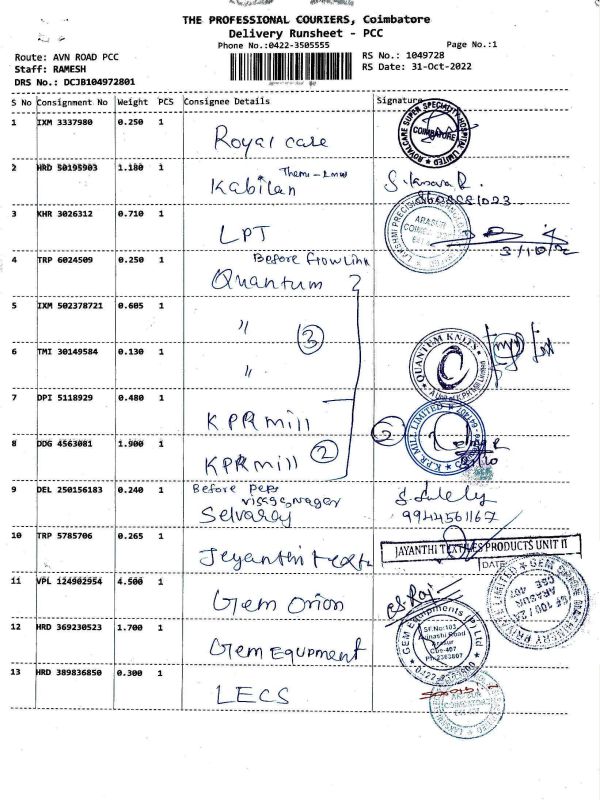 THE PROFESSIONAL COURIERS, Coimbatore
Delivery Runsheet - PCC
Phone No.:0422-3505555
Page No.:1
Route: AVN ROAD PCC
RS No.: 1049728
Staff: RAMESH
RS Date: 31-Oct-2022
DRS No.: DCJB104972801
S No Consignment No Weight PCS Consignee Details Signature
1 IXM 3337980 0.250 1 Royal care
ROYALCARE SUPER SPECIALITY HOSPITAL LIMITED
COIMBATORE
2 HRD 50195903 1.180 1 Kabilan
3 KHR 3026312 0.710 1 LPT
ARASUR
4 TRP 6024509 0.250 1 Before
Quantum
5 IXM 502378721 0.605 1 "
3
6 TMI 30149584 0.130 1 "
QUANTUM KNITS
7 DPI 5118929 0.480 1 KPR mill
8 DDG 4563081 1.900 1 KPR mill 2
2
K.P.R. MILL LIMITED
9 DEL 250156183 0.240 1 Before
Selvaraj
9944561167
10 TRP 5785706 0.265 1 Jeyanthi
JAYANTHI TEXTILES PRODUCTS UNIT II
DATE
11 VPL 124902954 4.500 1 Gem Orion
ARASUR
12 HRD 369230523 1.700 1 Gem Equpment
GEM Equipments (P) Ltd
SF.No:103
Avinashi Road
Arasur
Cbe-407
13 HRD 389836850 0.300 1 LECS
ARASUR